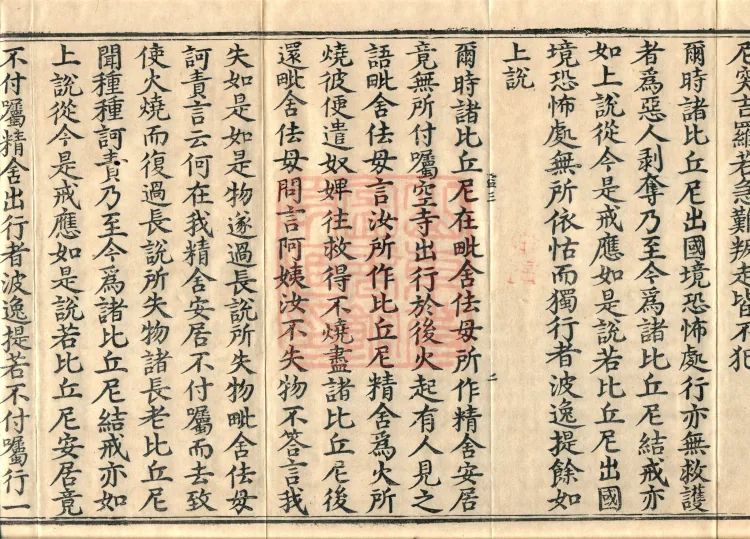 尼突吉羅若急難叛走皆不犯
爾時諸比丘尼出國境恐怖處行亦無救護
者爲惡人剥奪乃至今爲諸比丘尼結戒亦
如上說從今是戒應如是說若比丘尼出國
境恐怖處無所依怙而獨行者波逸提餘如
上說
爾時諸比丘尼在毗舍佉母所作精舍安居
竟無所付囑空寺出行於後火起有人見之
語毗舍佉母言汝所作比丘尼精舍爲火所
燒彼便遣奴婢往救得不燒盡諸比丘尼後
還毗舍佉母問言阿姨汝不失物不答言我
失如是如是物遂過長說所失物毗舍佉母
訶責言云何在我精舍安居不付囑而去致
使火燒而復過長說所失物諸長老比丘尼
聞種種訶責乃至今爲諸比丘尼結戒亦如
上說從今是戒應如是說若比丘尼安居竟
不付囑精舍出行者波逸提若不付囑行一
二